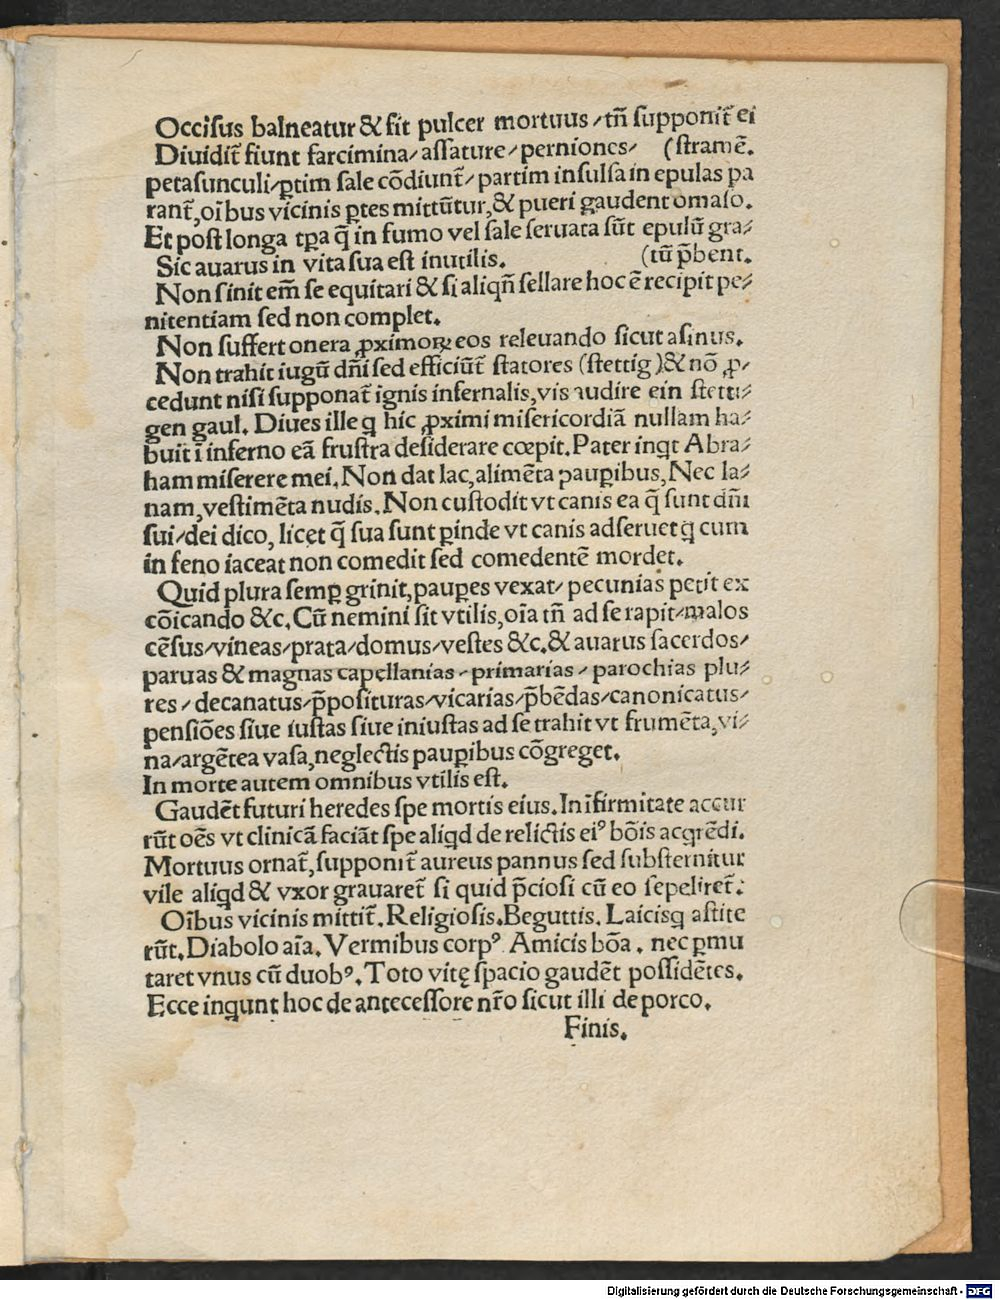 Occisus balneatur & fit pulcer mortuus / tn̄ supponit̄ ei
Diuidit̄ fiunt farcimina / assature / perniones / (stramē.
petasunculi / ꝑtim sale cōdiunt̄ / partim insulsa in epulas pa
rant̄, oībus vicinis ꝑtes mittūtur, & pueri gaudent omaso.
Et post longa tꝑa q̄ in fumo vel sale seruata sūt epulū gra⸗
Sic auarus in vita sua est inutilis. (tū p̄bent.
Non sinit em̄ se equitari & si aliqn̄ sellare hoc ē recipit pe⸗
nitentiam sed non complet.
Non suffert onera ꝓximoꝝ eos releuando sicut asinus.
Non trahit iugū dn̄i sed efficiūt̄ statores (stettig) & nō ꝓ⸗
cedunt nisi supponat̄ ignis infernalis, vis audire ein stetti⸗
gen gaul. Diues ille q̨ hic ꝓximi misericordiā nullam ha⸗
buit ī inferno eā frustra desiderare cœpit. Pater inqt Abra⸗
ham miserere mei. Non dat lac, alimēta pauꝑibus, Nec la⸗
nam, vestimēta nudis. Non custodit vt canis ea q̄ sunt dn̄i
sui / dei dico, licet q̄ sua sunt ꝑinde vt canis adseruet q̨ cum
in feno iaceat non comedit sed comedentē mordet.
Quid plura semꝑ grinit, pauꝑes vexat / pecunias petit ex
cōicando &c. Cū nemini sit vtilis, oīa tn̄ ad se rapit / malos
cēsus / vineas / prata / domus / vestes &c. & auarus sacerdos /
paruas & magnas capellanias / primarias / parochias plu⸗
res / decanatus / p̄posituras / vicarias / p̄bēdas / canonicatus /
pensiōes siue iustas siue iniustas ad se trahit vt frumēta, vi⸗
na / argētea vasa, neglectis pauꝑibus cōgreget.
In morte autem omnibus vtilis est.
Gaudēt futuri heredes spe mortis eius. In īfirmitate accur
rūt oēs vt clinicā faciāt spe aliqd de relictis eiꝰ bōis acqrēdi.
Mortuus ornat̄, supponit̄ aureus pannus sed substernitur
vile aliqd & vxor grauaret̄ si quid p̄ciosi cū eo sepeliret̄.
Oībus vicinis mittit̄. Religiosis. Beguttis. Laicisq̨ astite
rūt. Diabolo aīa. Vermibus corpꝰ. Amicis bōa. nec ꝑmu
taret vnus cū duobꝰ. Toto vitę spacio gaudēt possidētes.
Ecce inqunt hoc de antecessore nr̄o sicut illi de porco.
Finis.
Digitalisierung gefördert durch die Deutsche Forschungsgemeinschaft - DFG